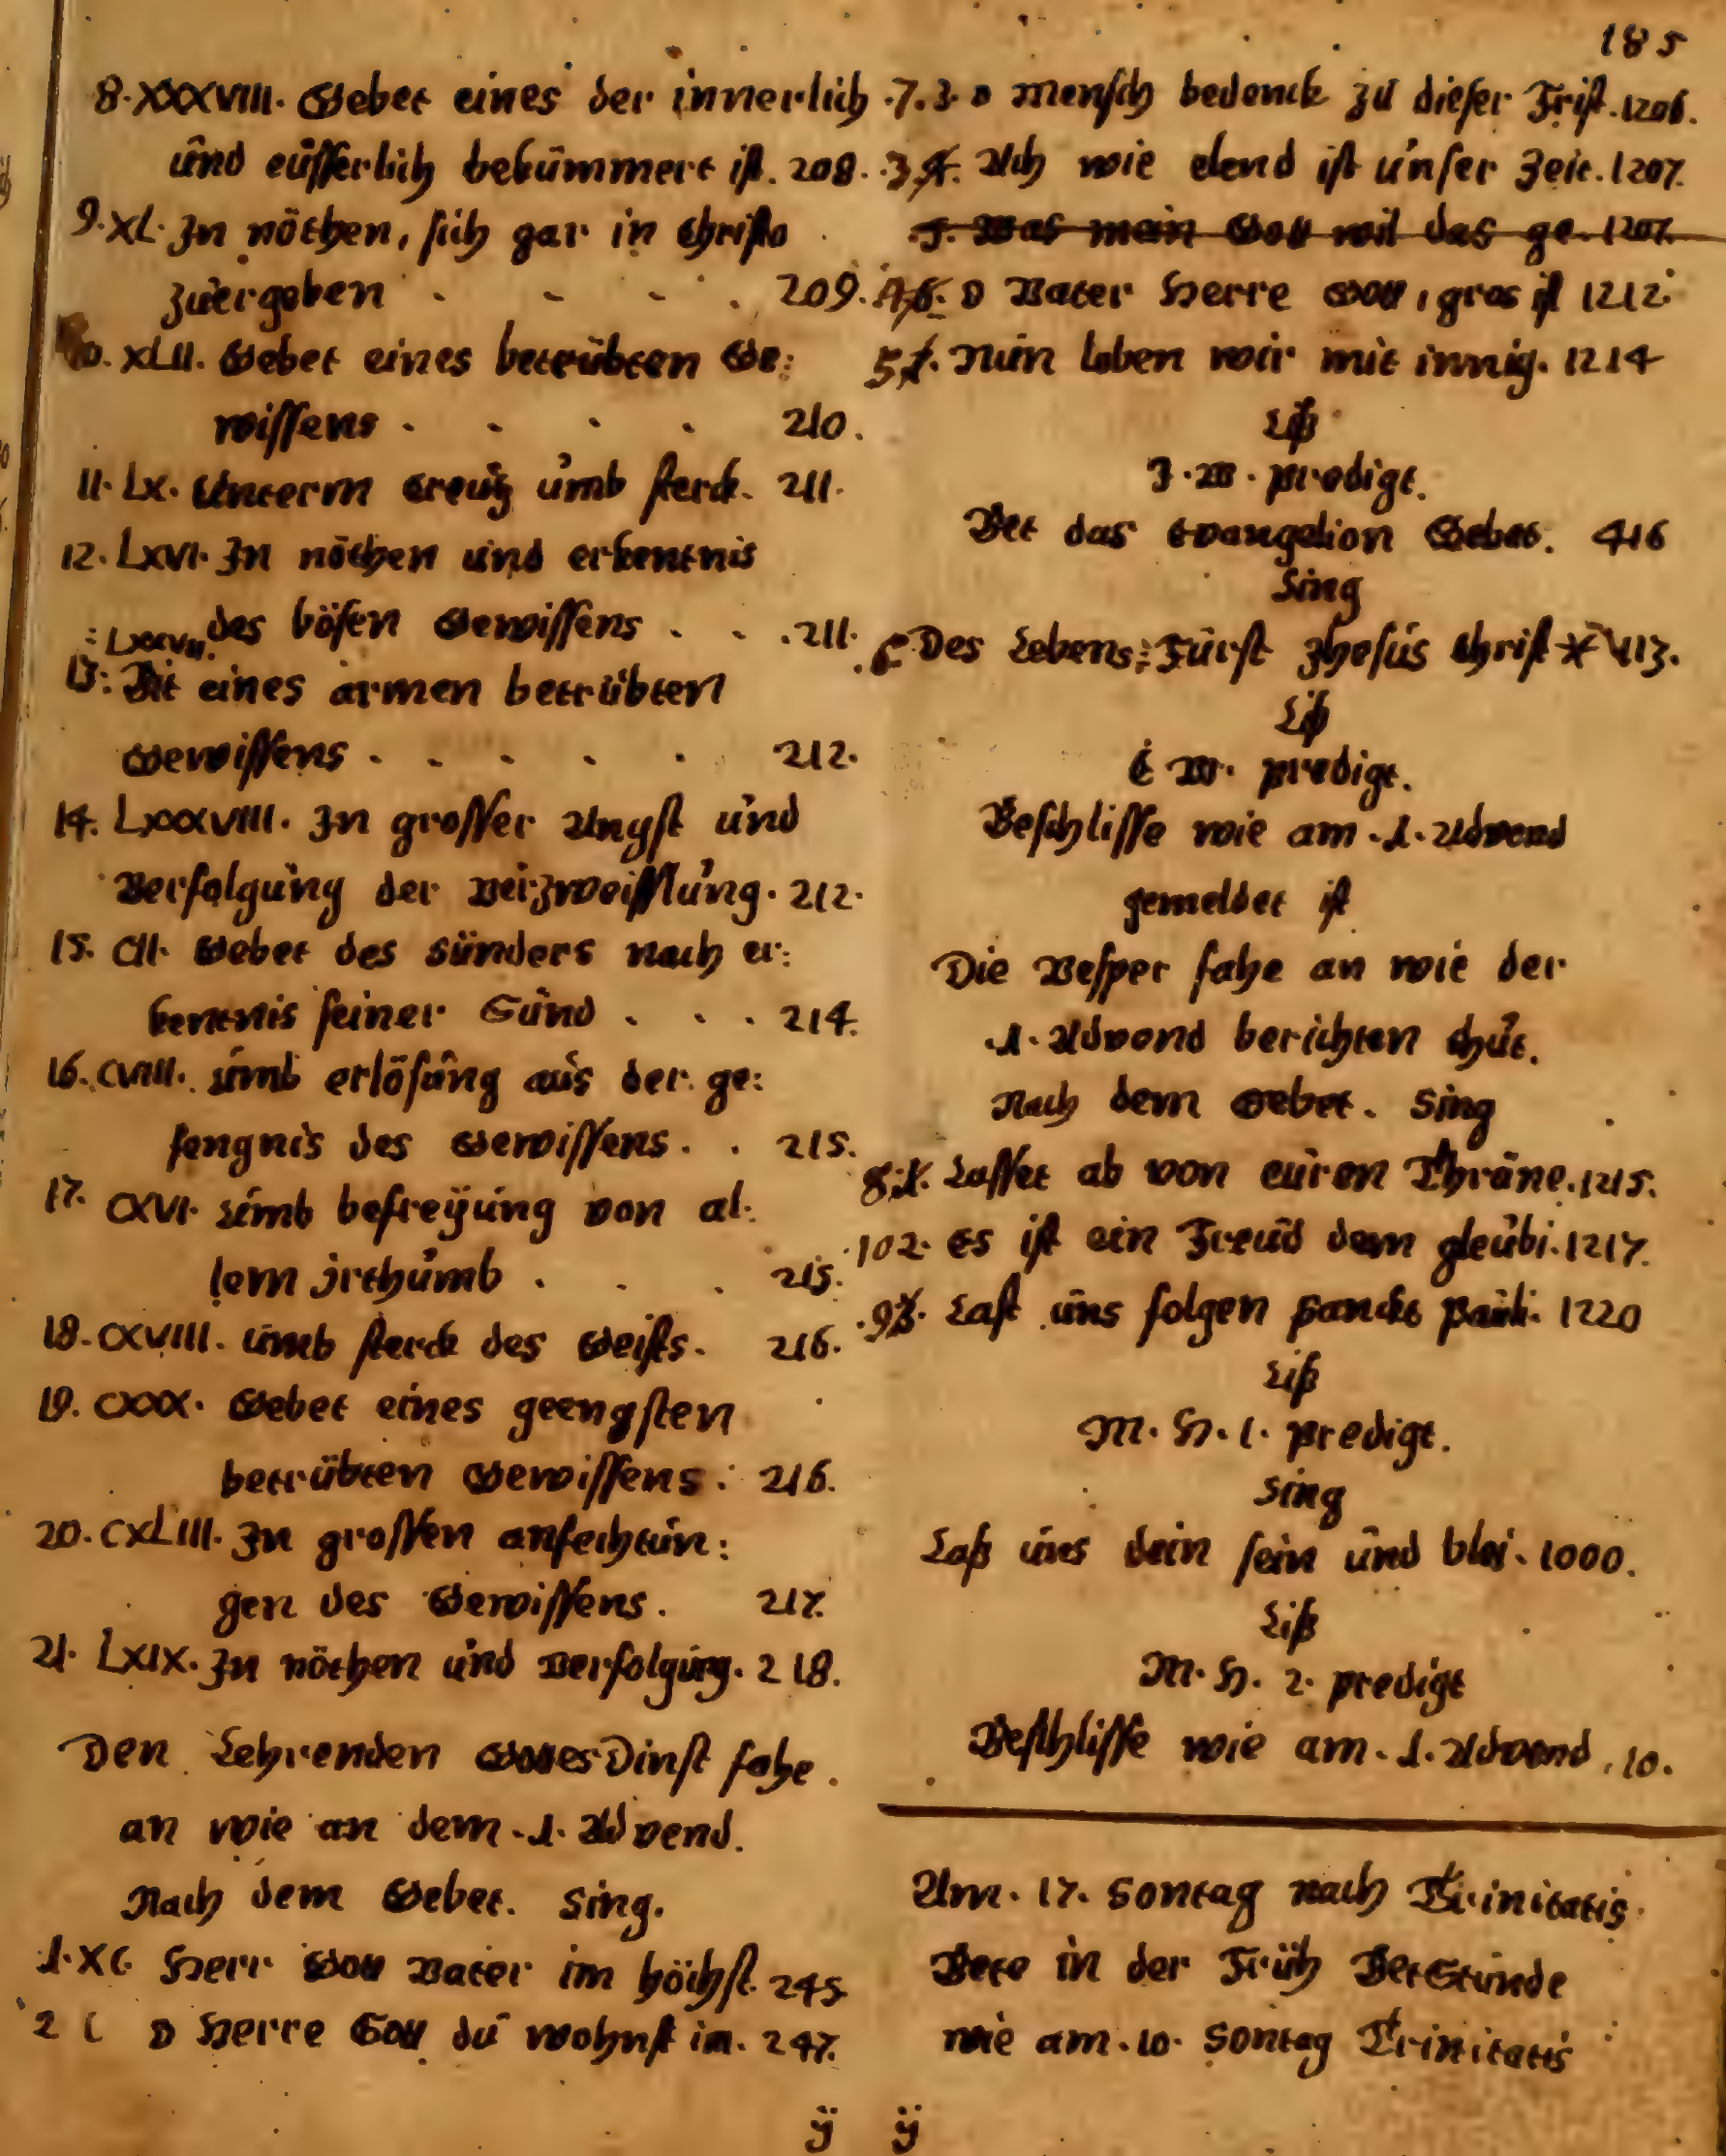 185
8. XXXVIII. Gebet eines der innerlich
und eüsserlich bekümmert ist. 208.
9. XL. In nöthen, sich gar in Christo
zuergeben . . . . 209.
XLII. Gebet eines betrübten Ge:
wissens . . . . 210.
11. LX. Unterm Creutz umb sterck. 211.
12. LXVI. In nöthen und erkentnis
des bösen Gewissens . . . 211.
13: Bit eines armen betrübten
Gewissens . . . . . 212.
14. LXXXVIII. In grosser Angst und
Verfolgung der Verzweifflung. 212.
15. CII. Gebet des sünders nach er:
kentnis seiner Sünd . . . 214.
16. CVIII. umb erlösung aus der ge:
fengnis des Gewissens . . 215.
17. CXVI. umb befreÿung von al:
lem irthumb . . . 215.
18. CXVIII. umb sterck des Geists. 216.
19. CXXX. Gebet eines geengsten
betrübten Gewissens: 216.
20. CXLIII. In grossen anfechtun:
gen des Gewissens. 217.
21. LXIX. In nöthen und Verfolgung. 218.
Den Lehrenden GottesDinst fahe
an wie an dem .1. Advend.
Nach dem Gebet. Sing.
1. XC Herr Gott Vater im höchst. 245.
2 C O Herre Gott du wohnst im. 247.
.7. 3. O Mensch bedenck zu dieser Frist. 1206.
.3 4. Ach wie elend ist unser Zeit. 1207.
5. Was mein Gott wil das ge. 1207.
4 6. O Vater Herre Gott, gros ist 1212.
5 7. Nun loben wir mit innig. 1214
Liß
J. W. predigt.
Bet das Evangelion Gebet. 416
Sing
6 Des Lebens: Fürst Jhesus Christ * 413.
Liß
E W. predigt.
Beschlisse wie am .1. Advend
gemeldet ist
Die Vesper fahe an wie der
.1. Advend berichten thut.
Nach dem Gebet. Sing
8. 1. Lasset ab von euren Thräne. 1215.
.10 2. Es ist ein Freud dem gleubi. 1217.
.9 3. Last uns folgen Sanckt Pauli. 1220
Liß
M. H. 1. predigt.
Sing
Laß uns dein sein und blei. 1000.
Liß
M. H. 2. predigt
Beschlisse wie am .1. Advend. 10.
Am. 17. Sontag nach Trinitatis.
Bete in der Früh BetStunde
wie am .10. Sontag Trinitatis
ÿ ÿ